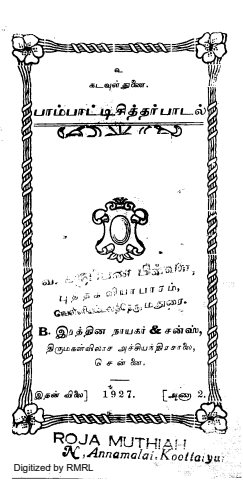 உ
கடவுள் துணை.
பாம்பாட்டிசித்தர்பாடல்
புத்தக வியாபாரம்,
மதுரை.
B. இரத்தின நாயகர் & சன்ஸ்,
திருமகள்விலாச அச்சியந்திரசாலை,
சென்னை.
இதன் விலை] 1927. [அணா 2.
ROJA MUTHIAH
N, Annamalai, Koottaiyur
Digitized by RMRL